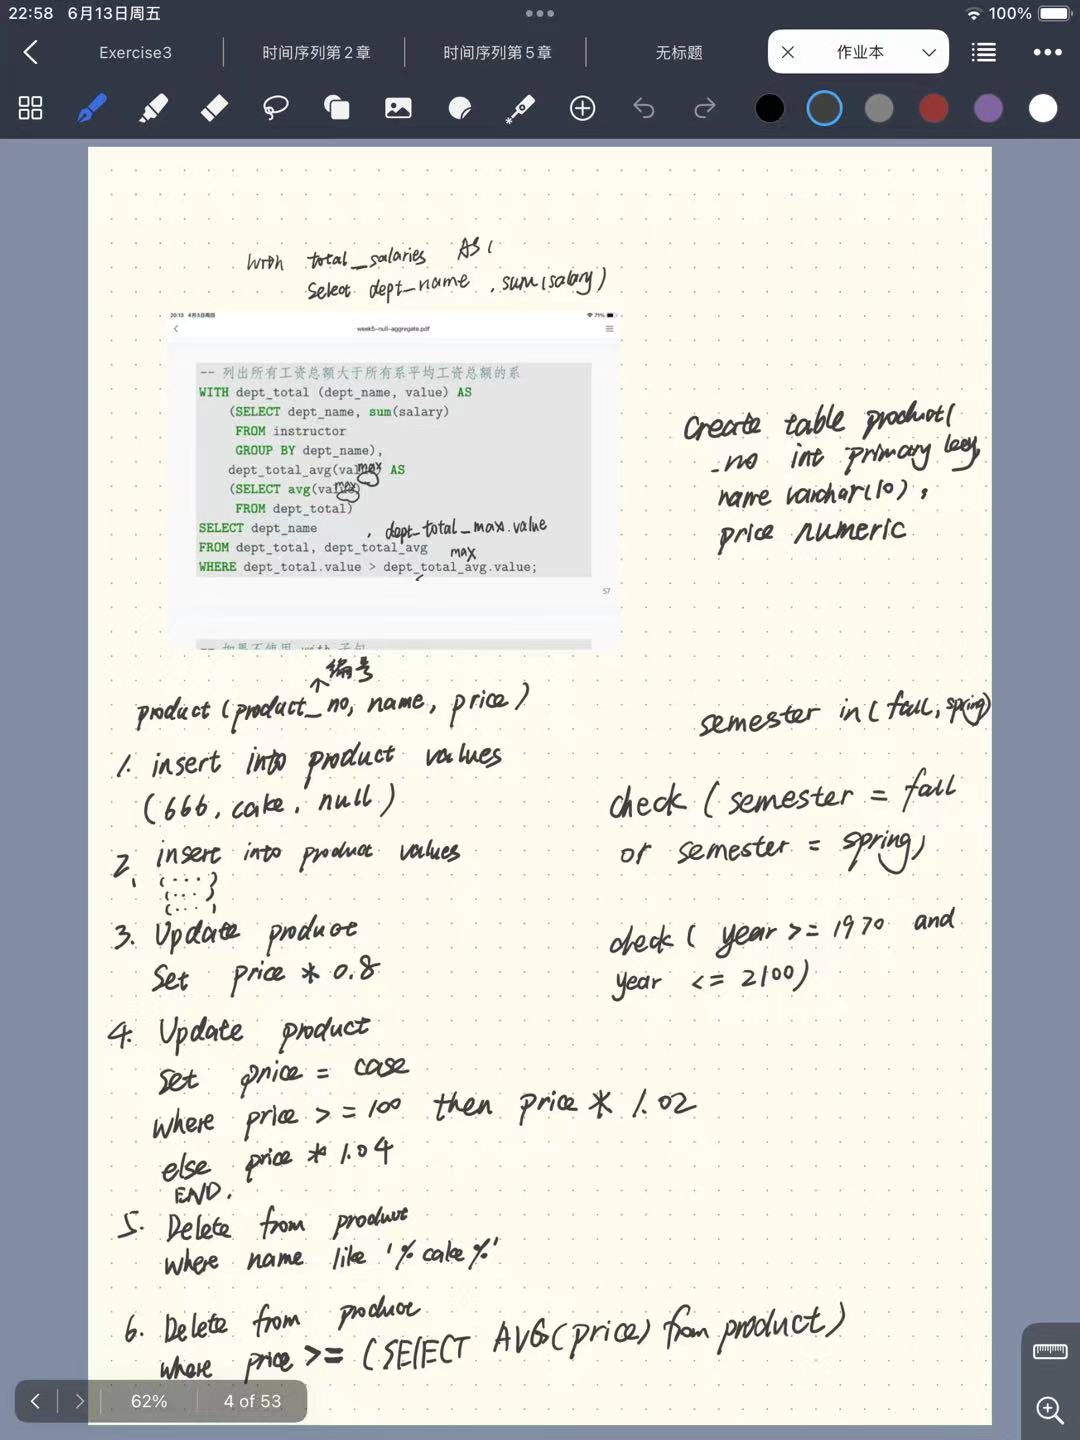 22:58 6月13日周五
100%
Exercise3
时间序列第2章
时间序列第5章
无标题
作业本
With total_salaries AS (
Select dept_name , sum(salary)
20:13 4月3日周四
71%
week5-null-aggregate.pdf
-- 列出所有工资总额大于所有系平均工资总额的系
WITH dept_total (dept_name, value) AS
(SELECT dept_name, sum(salary)
FROM instructor
GROUP BY dept_name),
dept_total_avg(value) AS
max
(SELECT avg(value)
max
FROM dept_total)
SELECT dept_name , dept_total_max.value
FROM dept_total, dept_total_avg
max
WHERE dept_total.value > dept_total_avg.value;
57
-- 如果不使用 with 子句
Create table product(
no int primary key
name varchar(10),
price numeric
编号
product (product_no, name, price)
1. insert into product values
(666, cake, null)
2. insert into product values
(...)
(...)
(...)
3. Update product
Set price * 0.8
4. Update product
Set price = case
where price >= 100 then price * 1.02
else price * 1.04
END.
5. Delete from product
where name like '%cake%'
6. Delete from product
where price >= (SELECT AVG(price) from product)
semester in (fall, spring)
check (semester = fall
or semester = spring)
check ( year >= 1970 and
year <= 2100)
62%
4 of 53